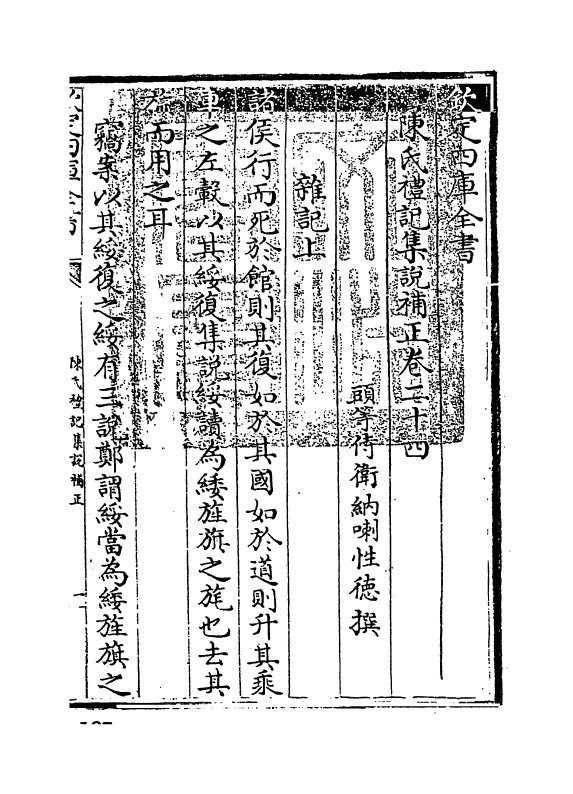 欽定四庫全書
陳氏禮記集說補正卷二十四
頭等侍衛納喇性徳撰
雜記上
諸侯行而死於館則其復如於其國如於道則升其乘
車之左轂以其綏復集說綏讀為緌旌旗之旄也去其
旒而用之耳
竊案以其綏復之綏有三說鄭謂綏當為緌旌旗之
欽定四庫全書
陳氏禮記集說補正
一